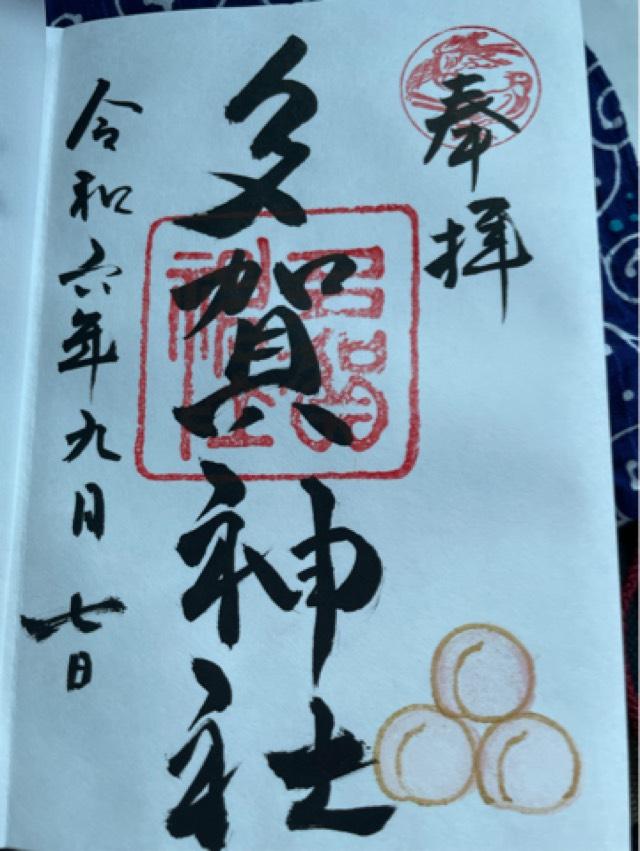 奉拝
多賀神社
令和六年九月七日